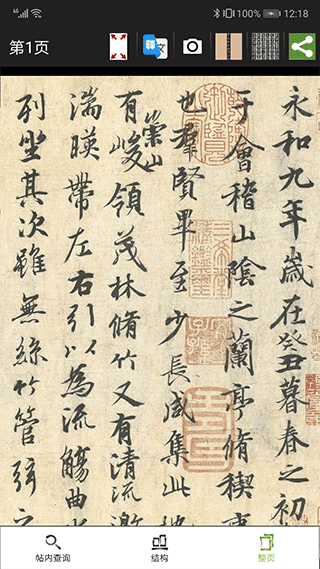 12:18
100%
第1页
釋
文
永和九年歲在癸丑暮春之初
于會稽山陰之蘭亭脩禊事
也羣賢畢至少長咸集此地
有崇山峻領茂林脩竹又有清流激
湍暎帶左右引以為流觴曲水
列坐其次雖無絲竹管弦之
帖内查询
结构
整页